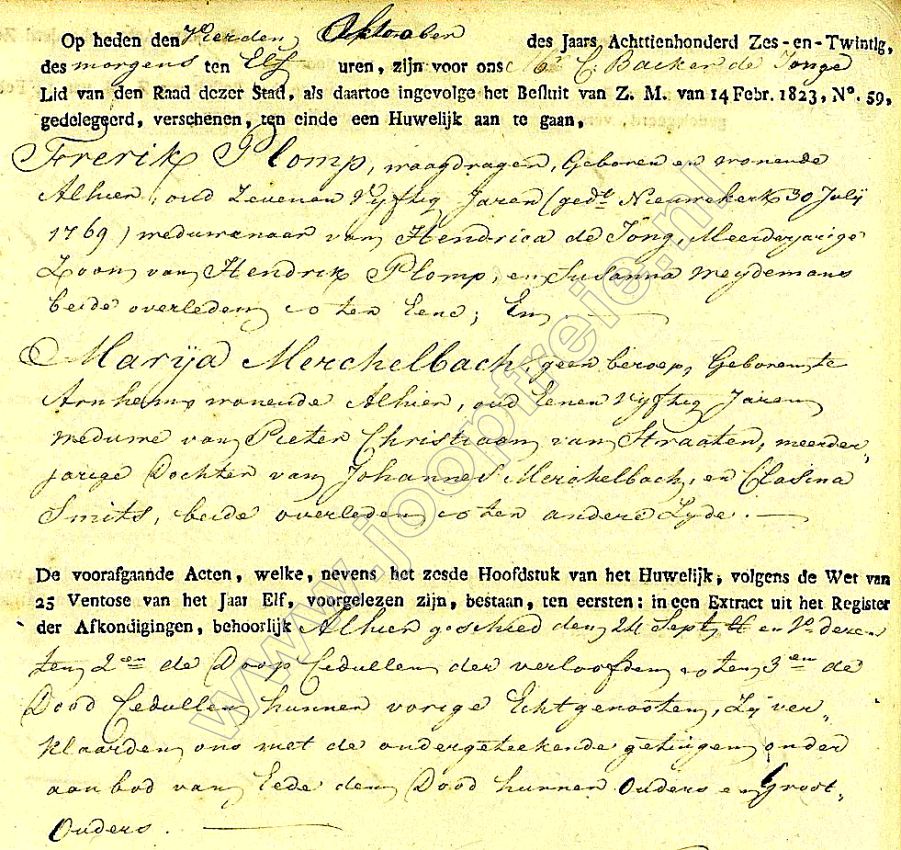 Op heden den Vierden October des Jaars Achttienhonderd Zes-en-Twintig,
des morgens ten Elf uren, zijn voor ons Mr. C: Backer de Jonge
Lid van den Raad dezer Stad, als daartoe ingevolge het Besluit van Z. M. van 14 Febr. 1823, No. 59,
gedelegeerd, verschenen, ten einde een Huwelijk aan te gaan,
Frerik Plomp, waagdrager, Geboren en wonende
Alhier, oud Zeven en Vyftig Jaren (gedt. Nieuwekerk 30 July
1769) weduwenaar van Hendrica de Jong, Meerderjarige
Zoon van Hendrik Plomp, en Susanna Weydemans
beide overleden, ter Eene; En,
Marija Merchelbach, geen beroep, Geboren te
Arnhem, wonende Alhier, oud Eenen Vyftig Jaren
weduwe van Pieter Christiaan van Straaten, meerder,,
jarige Dochter van Johannes Merchelbach, en Clasina
Smits, beide overleden, ter andere Zyde.
De voorafgaande Acten, welke, nevens het zesde Hoofdstuk van het Huwelijk, volgens de Wet van
25 Ventose van het Jaar Elf, voorgelezen zijn, bestaan, ten eersten: in een Extract uit het Register
der Afkondigingen, behoorlijk Alhier geschied den 24 Sept. en dezer
ten 2en de Doop Cedullen der verloofden ten 3en de
Dood Cedullen hunner vorige Echtgenooten, Zy ver,,
klaarden ons met de ondergeteekende getuigen onder
aanbod van Eede den Dood hunner Ouders en Groot,,
Ouders.
www.jooptreie.nl